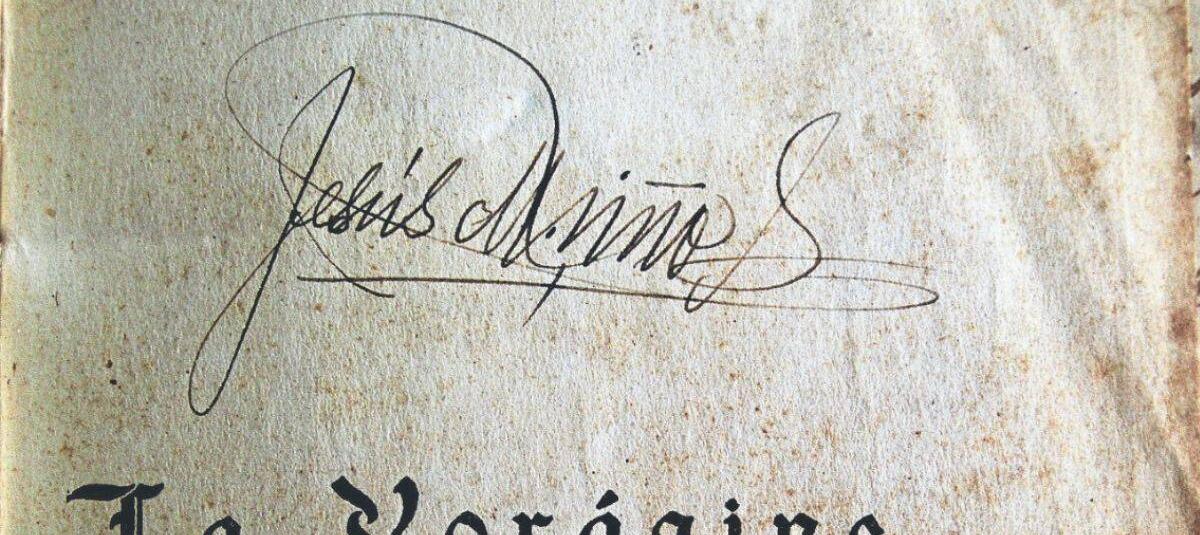 Jesús M. Niño S
La Vorágine